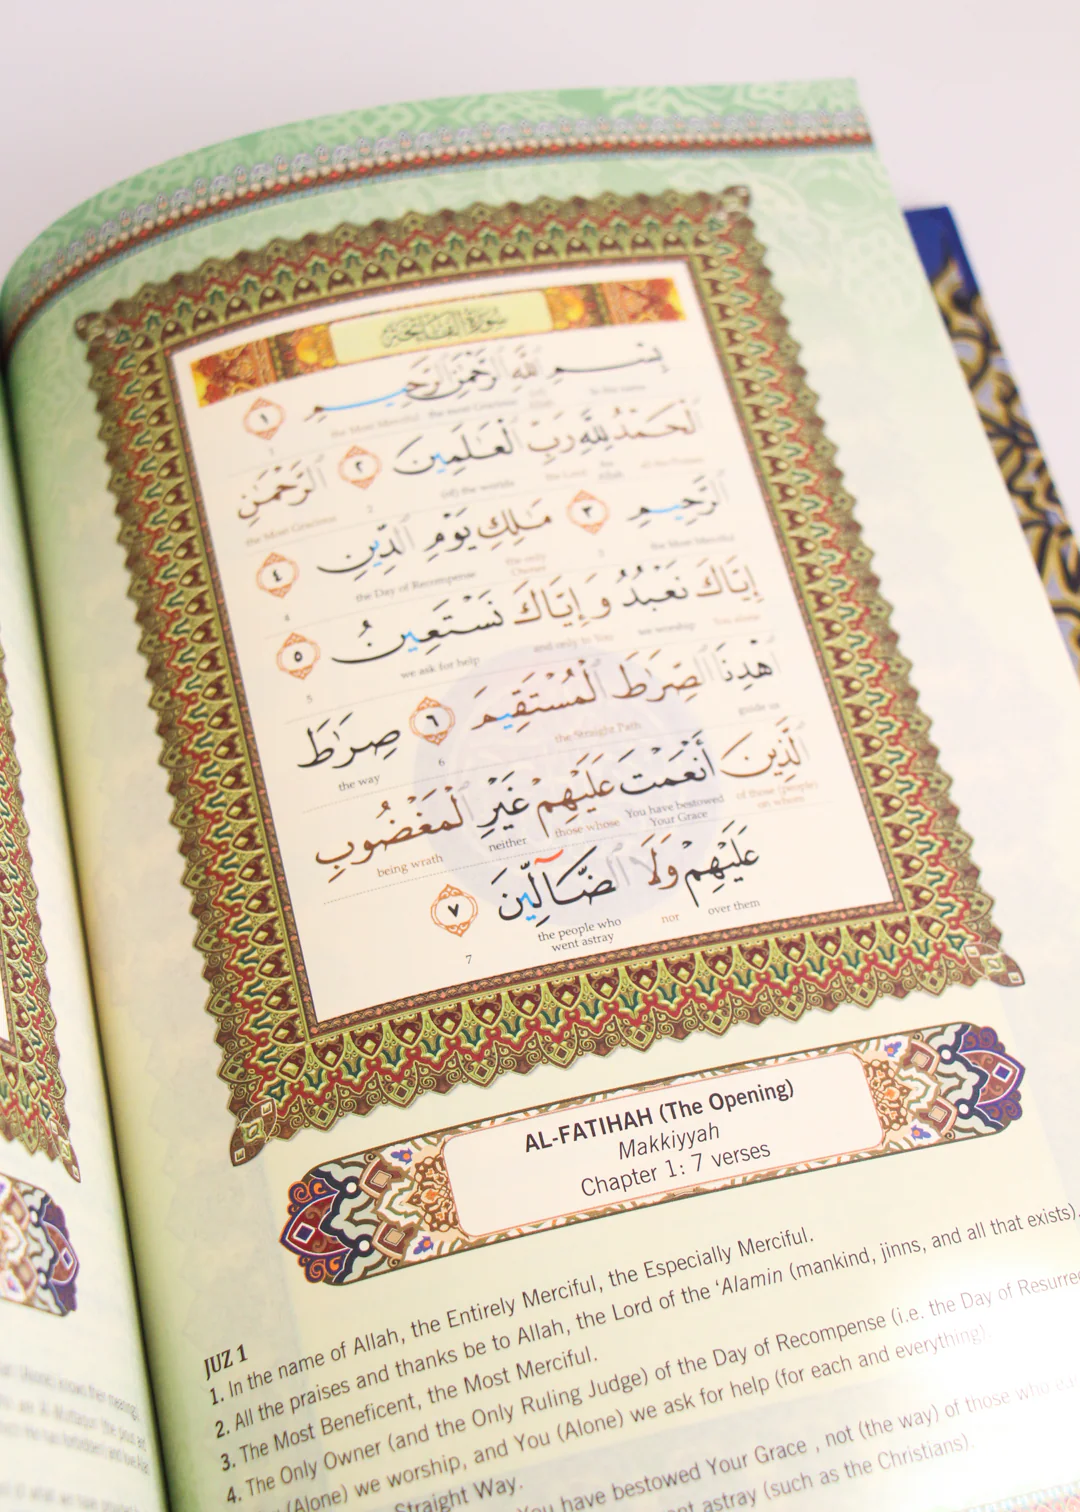 سورة الفاتحة
بِسْمِ ٱللَّهِ ٱلرَّحْمَٰنِ ٱلرَّحِيمِ ١
the Most Merciful the most Gracious (of) Allah In the name
1
ٱلْحَمْدُ لِلَّهِ رَبِّ ٱلْعَٰلَمِينَ ٢ ٱلرَّحْمَٰنِ
(of) the worlds the Lord Allah
the Most Gracious 2
ٱلرَّحِيمِ ٣ مَٰلِكِ يَوْمِ ٱلدِّينِ ٤
the Most Merciful
3 The only Owner the Day of Recompense
4
إِيَّاكَ نَعْبُدُ وَإِيَّاكَ نَسْتَعِينُ ٥
You alone we worship and only to You we ask for help
5
ٱهْدِنَا ٱلصِّرَٰطَ ٱلْمُسْتَقِيمَ ٦ صِرَٰطَ
guide us the Straight Path 6 the way
ٱلَّذِينَ أَنْعَمْتَ عَلَيْهِمْ غَيْرِ ٱلْمَغْضُوبِ
of those (people) on whom You have bestowed Your Grace those whose neither being wrath
عَلَيْهِمْ وَلَا ٱلضَّآلِّينَ ٧
over them nor the people who went astray
7
AL-FATIHAH (The Opening)
Makkiyyah
Chapter 1: 7 verses
JUZ 1
1. In the name of Allah, the Entirely Merciful, the Especially Merciful.
2. All the praises and thanks be to Allah, the Lord of the ‘Alamin (mankind, jinns, and all that exists).
3. The Most Beneficent, the Most Merciful.
4. The Only Owner (and the Only Ruling Judge) of the Day of Recompense (i.e. the Day of Resurre
(Alone) we worship, and You (Alone) we ask for help (for each and everything).
Straight Way.
You have bestowed Your Grace , not (the way) of those who
astray (such as the Christians).